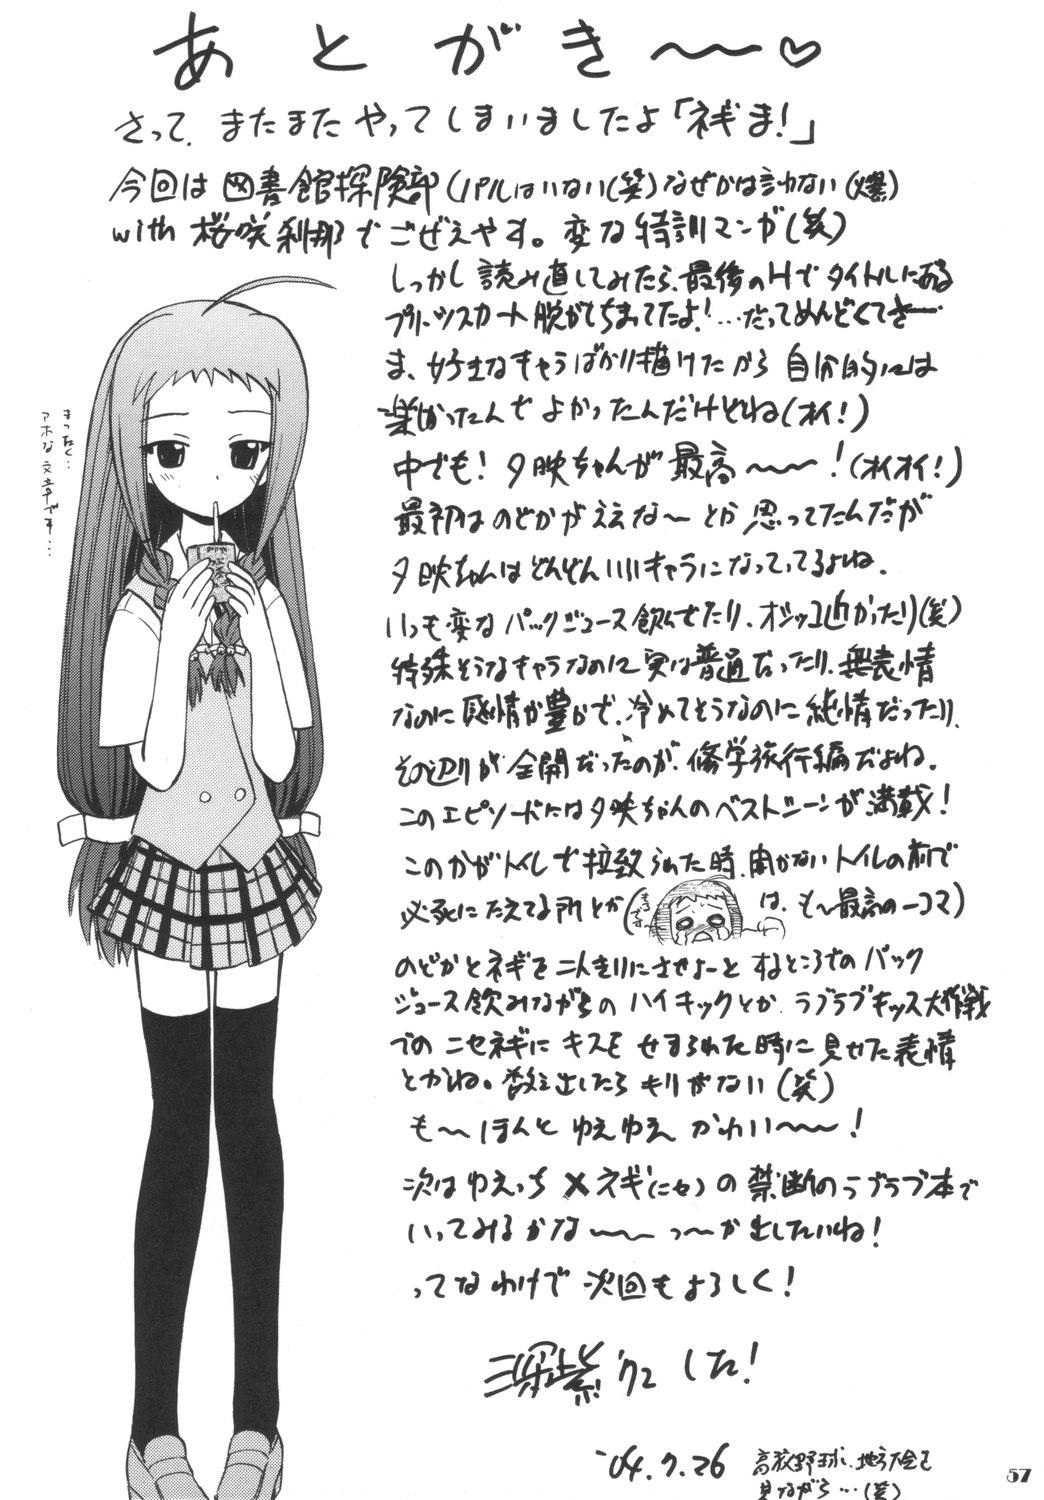 あとがき～～♡
さって、またまたやってしまいましたよ「ネギま!」
今回は図書館探険部(パルはいない(笑)なぜかは言わない(爆)
with 桜咲刹那でごぜえやす。変な特訓マンガ(笑)
しっかし読み直してみたら、最後のHでタイトルにある
プリーツスカート脱がしちまってたよ!…だってめんどくてさー…
ま、好きなキャラばかり描けたから自分的には
楽しかったんでよかったんだけどね(オイ!)
中でも!夕映ちゃんが最高～～～!(オイオイ!)
最初はのどかがええな～とか思ってたんだが
夕映ちゃんはどんどんいいキャラになってってるよね。
いつも変なパックジュース飲んでたり、オシッコ近かったり(笑)
特殊そうなキャラなのに実は普通だったり、無表情
なのに感情が豊かで、冷めてそうなのに純情だったり、
その辺りが全開だったのが、修学旅行編だよね。
このエピソードには夕映ちゃんのベストシーンが満載!
このかがトイレで拉致られた時、開かないトイレの前で
必死にたえてる所とか(もるですぅ は、も～最高の一コマ)
のどかとネギを二人きりにさせよーとするところでのパック
ジュース飲みながらのハイキックとか、ラブラブキッス大作戦
でのニセネギにキスをせまられた時に見せた表情
とかね。数え出したらキリがない(笑)
も～ほんとゆえゆえかわい～～～!
次はゆえっち×ネギ(ニセ)の禁断のラブラブ本で
いってみるかな～～～っ～か出したいね!
ってなわけで次回もよろしく!
深紫でした!
'04.7.26
高校野球、地方大会を
見ながら…(笑)
まったく…
アホな文章です…
57